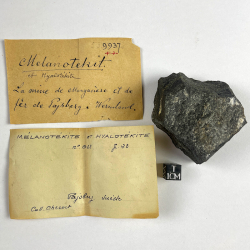 9937
Melanotekit.
et Hyalotekite
La mine de Manganèse et de
fer de Pajsberg. Wermland.
MELANOTEKITE & HYALOTEKITE
Pajsberg Suède
Coll.
1CM